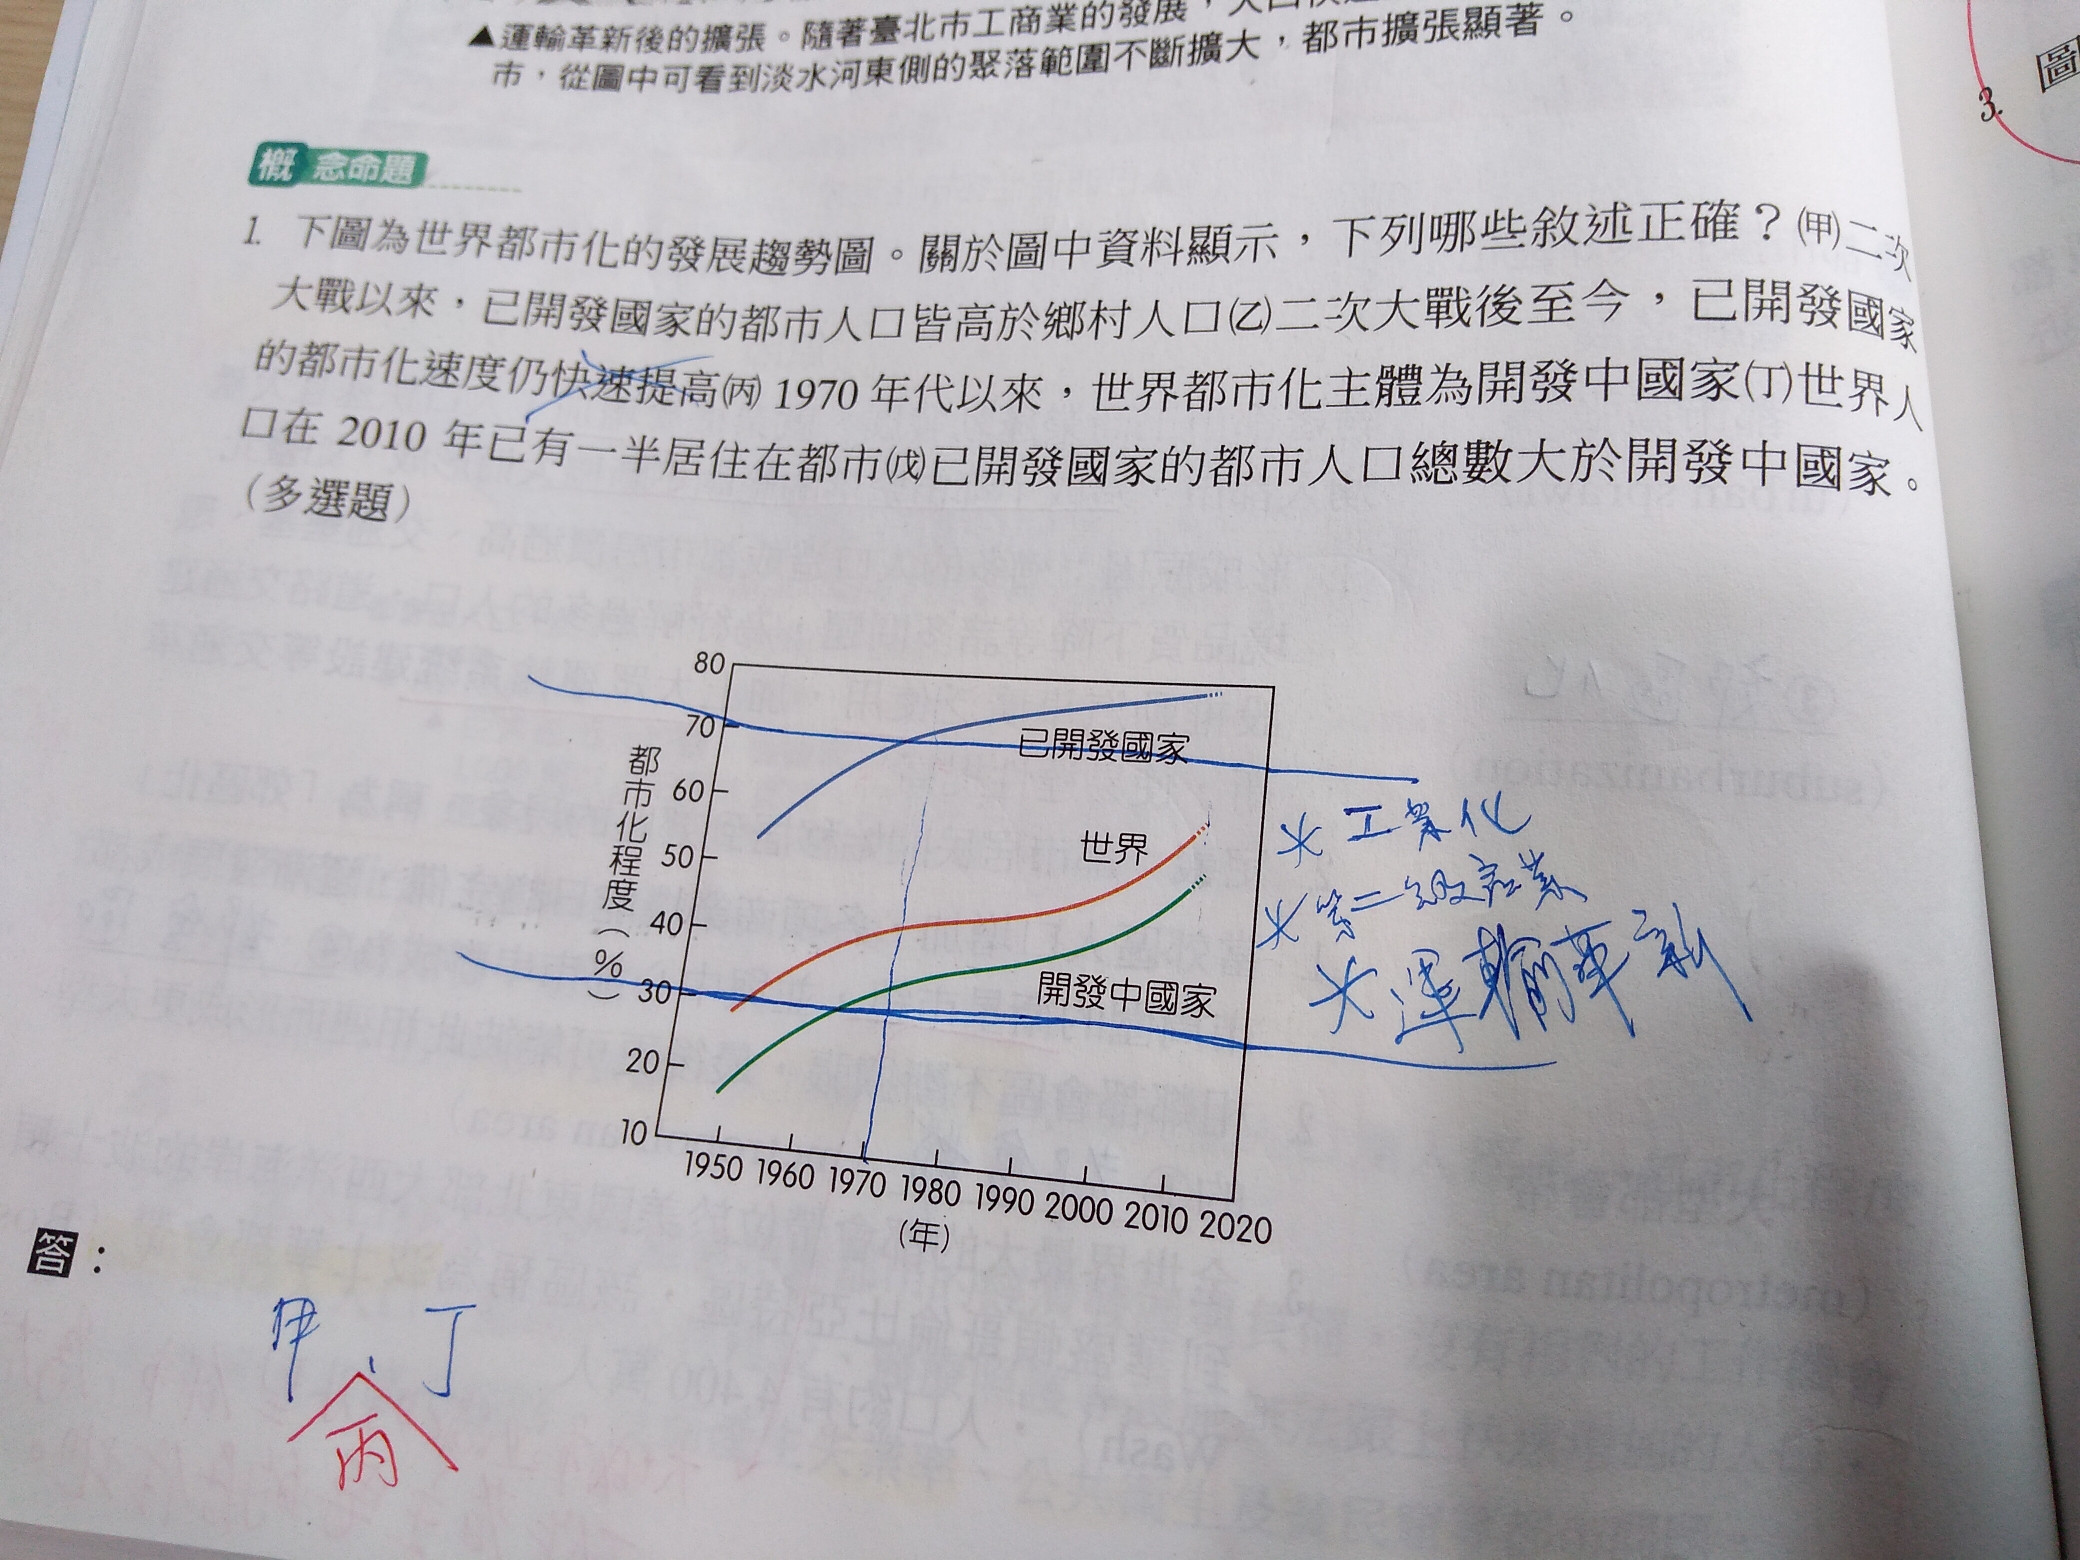 ▲運輸革新後的擴張。隨著臺北市工商業的發展，
市，從圖中可看到淡水河東側的聚落範圍不斷擴大，都市擴張顯著。
3.
圖
概念命題
1. 下圖為世界都市化的發展趨勢圖。關於圖中資料顯示，下列哪些敘述正確？㈙二次
大戰以來，已開發國家的都市人口皆高於鄉村人口㈚二次大戰後至今，已開發國家
的都市化速度仍快速提高㈛ 1970 年代以來，世界都市化主體為開發中國家㈜世界人
口在 2010 年已有一半居住在都市㈝已開發國家的都市人口總數大於開發中國家。
（多選題）
80
70
60
50
40
30
20
10
都市化程度（%）
已開發國家
世界
開發中國家
1950 1960 1970 1980 1990 2000 2010 2020
(年)
工業化
第二級產業
運輸革新
答：
甲、丁
丙